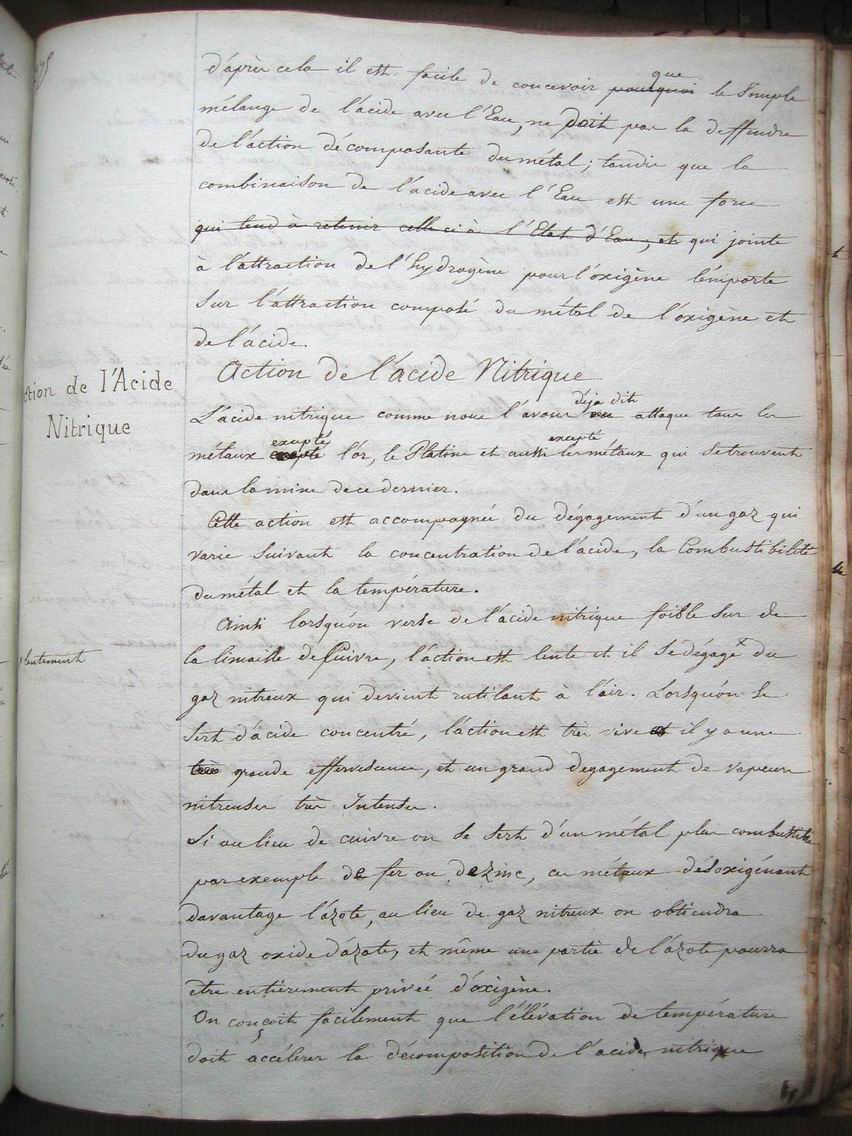 d'après cela il est facile de concevoir pourquoi que le Simple
mélange de l'acide avec l'Eau, ne doit pas la deffendre
de l'action décomposante du métal; tandis que la
combinaison de l'acide avec l'Eau est une force
qui tend à retenir celle ci à l'Etat d'Eau, et qui jointe
à l'attraction de l'hydrogène pour l'oxigène l'emporte
Sur l'attraction composé du métal de l'oxigène et
de l'acide.
Action de l'acide Nitrique
ction de l'Acide
Nitrique
L'acide nitrique comme nous l'avons déja dit attaque tous les
métaux excepté l'or, le Platine et aussi excepté les métaux qui se trouvent
dans la mine de ce dernier.
Cette action est accompagnée du dégagement d'un gaz qui
varie Suivant la concentration de l'acide, la Combustibilité
du métal et la température.
Ainsi lorsqu'on verse de l'acide nitrique foible sur de
la limaille de Cuivre, l'action est lente et il Se dégage x du
lentement
gaz nitreux qui devient rutilant à l'air. Lorsqu'on se
Sert d'acide concentré, l'action est très vive et il y a une
très grande effervescence, et un grand dégagement de vapeurs
nitreuses très Intenses.
Si au lieu de cuivre on Se Sert d'un métal plus combustible
par exemple de fer ou de zinc, ces métaux désoxigénant
davantage l'azote, au lieu de gaz nitreux on obtiendra
du gaz oxide d'azote, et même une partie de l'azote pourra
etre entièrement privée d'oxigène.
On conçoit facilement que l'élévation de température
doit accélérer la décomposition de l'acide nitrique